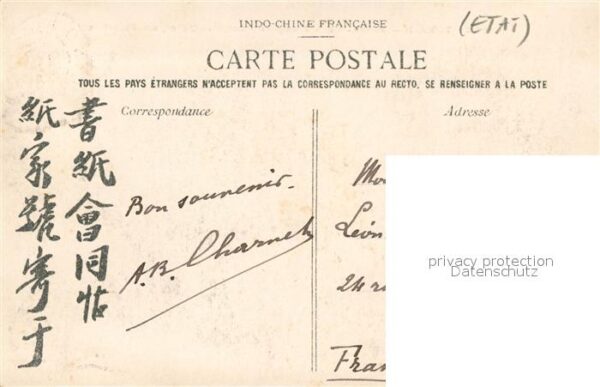 INDO-CHINE FRANÇAISE
(ETAT)
CARTE POSTALE
TOUS LES PAYS ÉTRANGERS N'ACCEPTENT PAS LA CORRESPONDANCE AU RECTO. SE RENSEIGNER A LA POSTE
Correspondance
Adresse
書紙會同帖
紙家號寄于
Bon souvenir.
A.B. Charnet
Léon
24
Fran
privacy protection
Datenschutz